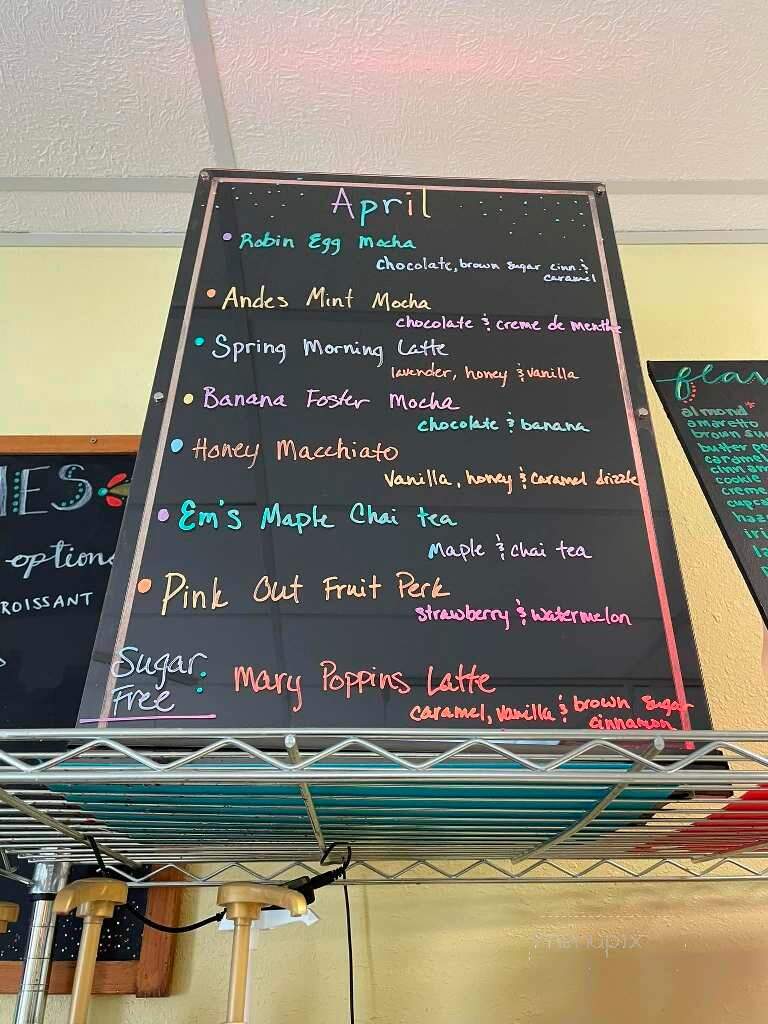 April
Robin Egg Mocha
chocolate, brown sugar cinn. &
caramel
Andes Mint Mocha
chocolate & creme de menthe
Spring Morning Latte
lavender, honey & vanilla
Banana Foster Mocha
chocolate & banana
Honey Macchiato
Vanilla, honey & caramel drizzle
Em's Maple Chai tea
Maple & chai tea
Pink Out Fruit Perk
strawberry & watermelon
Sugar
Free: Mary Poppins Latte
caramel, vanilla & brown sugar
cinnamon
IES
option
ROISSANT
flav
almond*
amaretto
brown su
butter pe
caramel
cinnam
cookie
creme
cupca
haze
iri
la
menupix